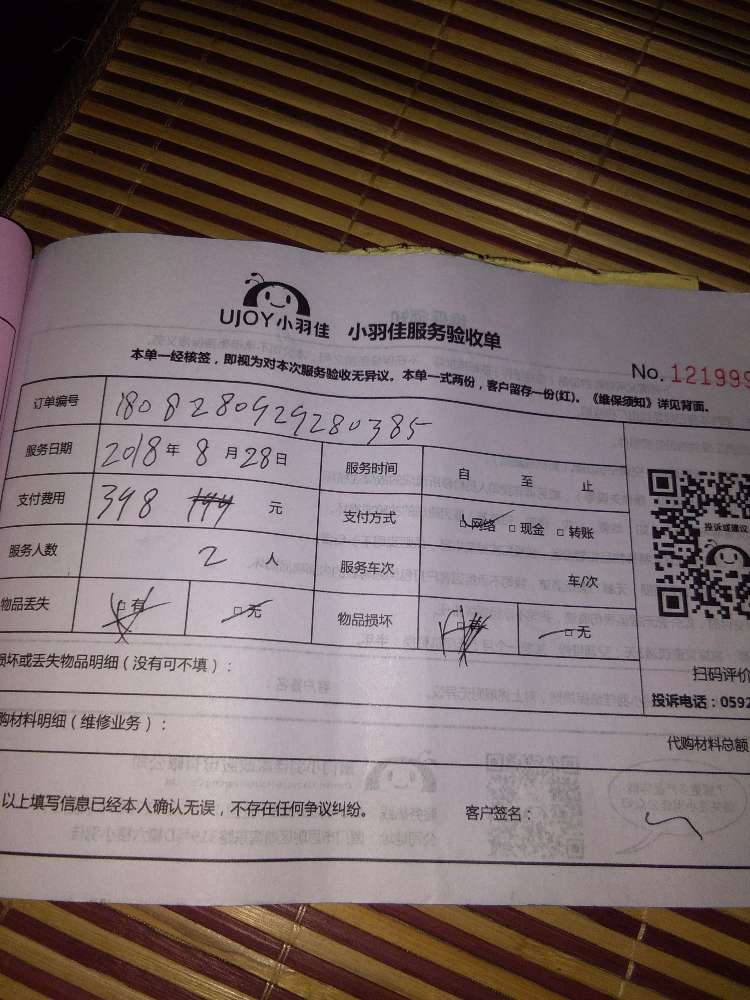 UJOY小羽佳 小羽佳服务验收单
本单一经核签，即视为对本次服务验收无异议。本单一式两份，客户留存一份(红)。《维保须知》详见背面。
No. 121999
订单编号 1808280929280385
服务日期 2018 年 8 月 28 日 服务时间 自 至 止
支付费用 398 元 支付方式 □网络 □现金 □转账
投诉或建议
服务人数 2 人 服务车次 车/次
物品丢失 □有 □无 物品损坏 □有 □无
损坏或丢失物品明细（没有可不填）：
扫码评价
投诉电话：0592
购材料明细（维修业务）：
代购材料总额
以上填写信息已经本人确认无误，不存在任何争议纠纷。 客户签名：